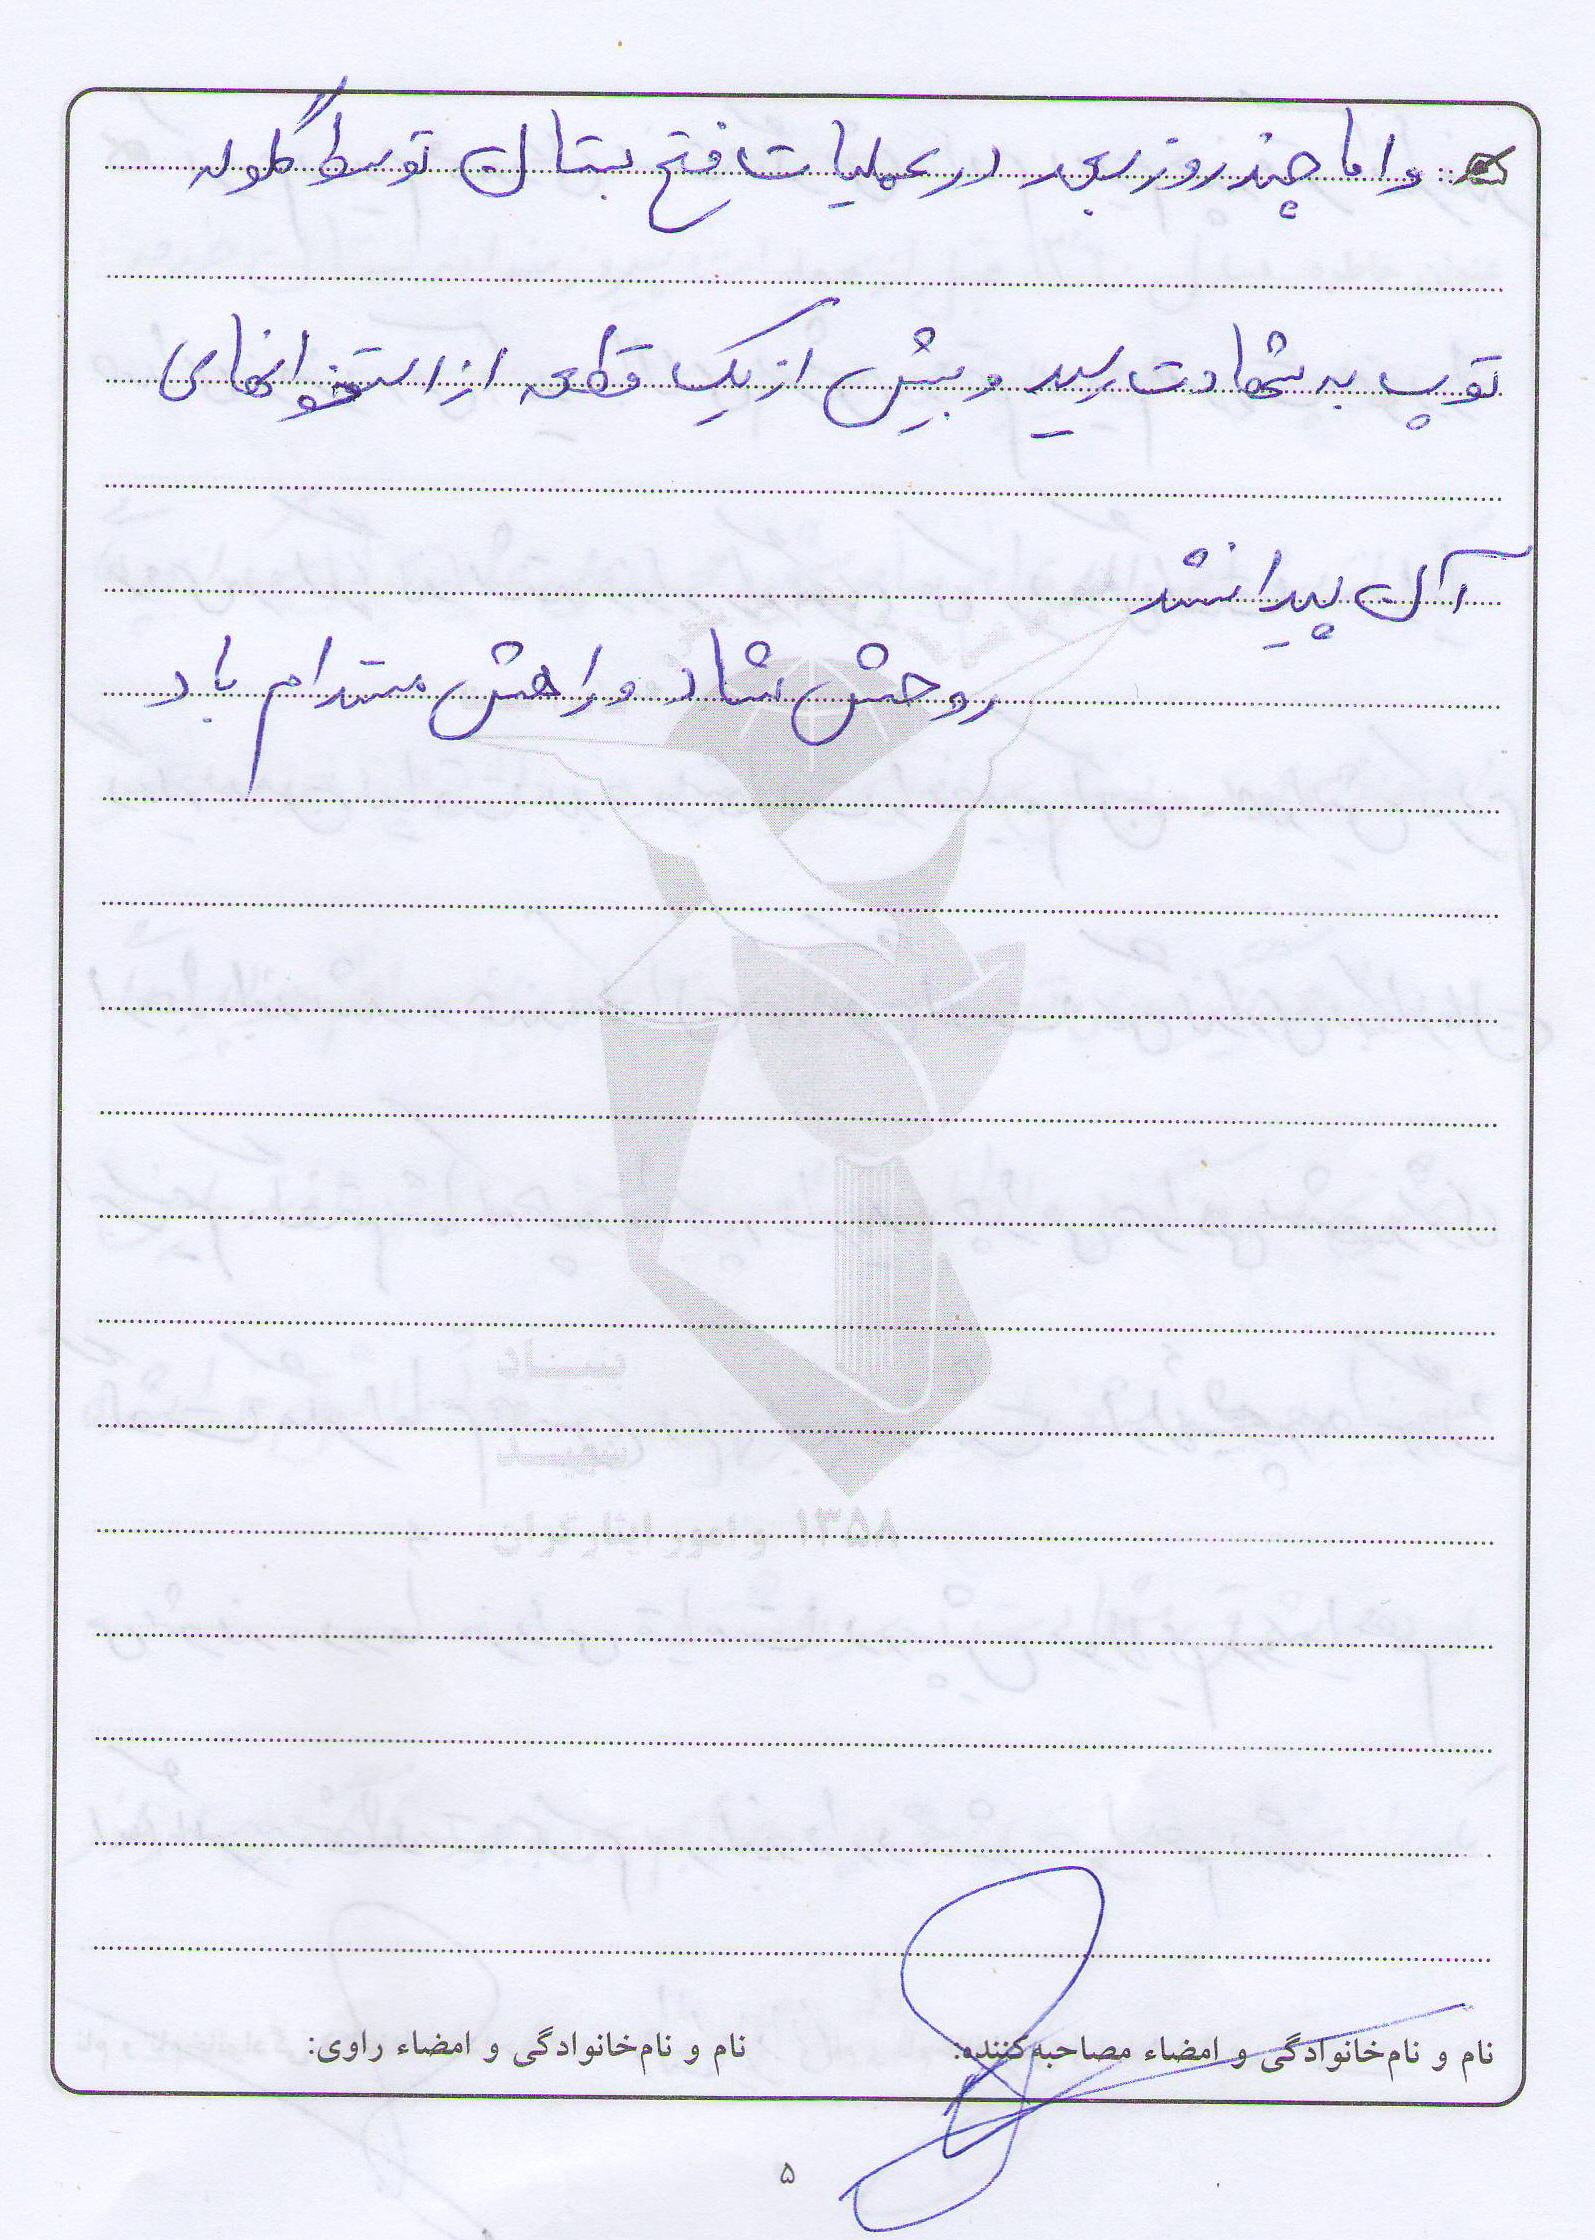 و اما چند روز بعد در عملیات فتح بستان توسط گلوله
توپ به شهادت رسید و بیش از یک قطعه از استخوانهای
آن پیدا نشد
روحش شاد و راهش مستدام باد
بنیاد
شهید
و امور ایثارگران ۱۳۵۸
نام و نام‌خانوادگی و امضاء مصاحبه‌کننده:
نام و نام‌خانوادگی و امضاء راوی:
۵